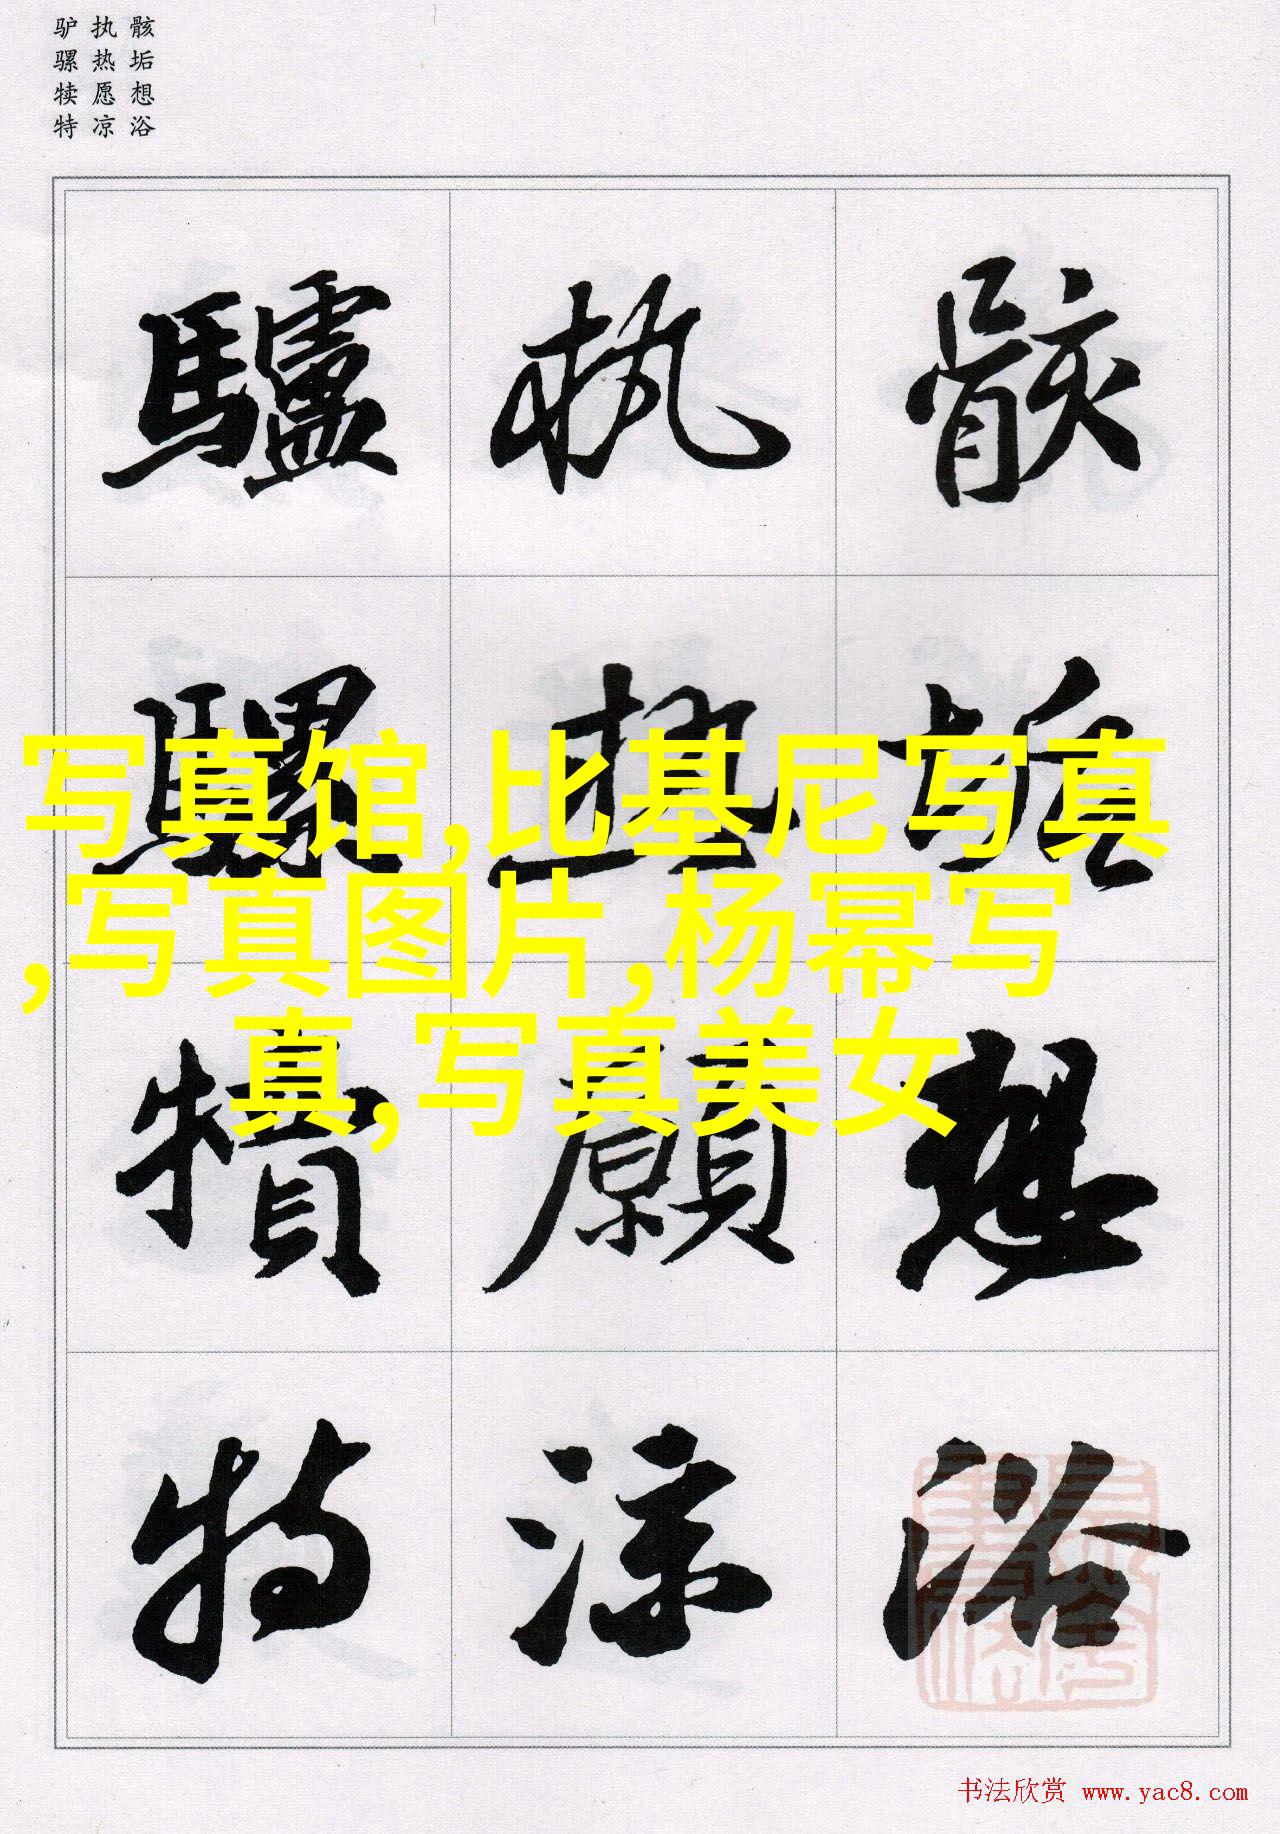 骸垢想浴
执热愿凉
驴骡犊特
骸垢想浴
執熱願涼
驢騾犢特
写真馆,比基尼写真
,写真图片,杨幂写
真,写真美女
书法欣赏 www.yac8.com